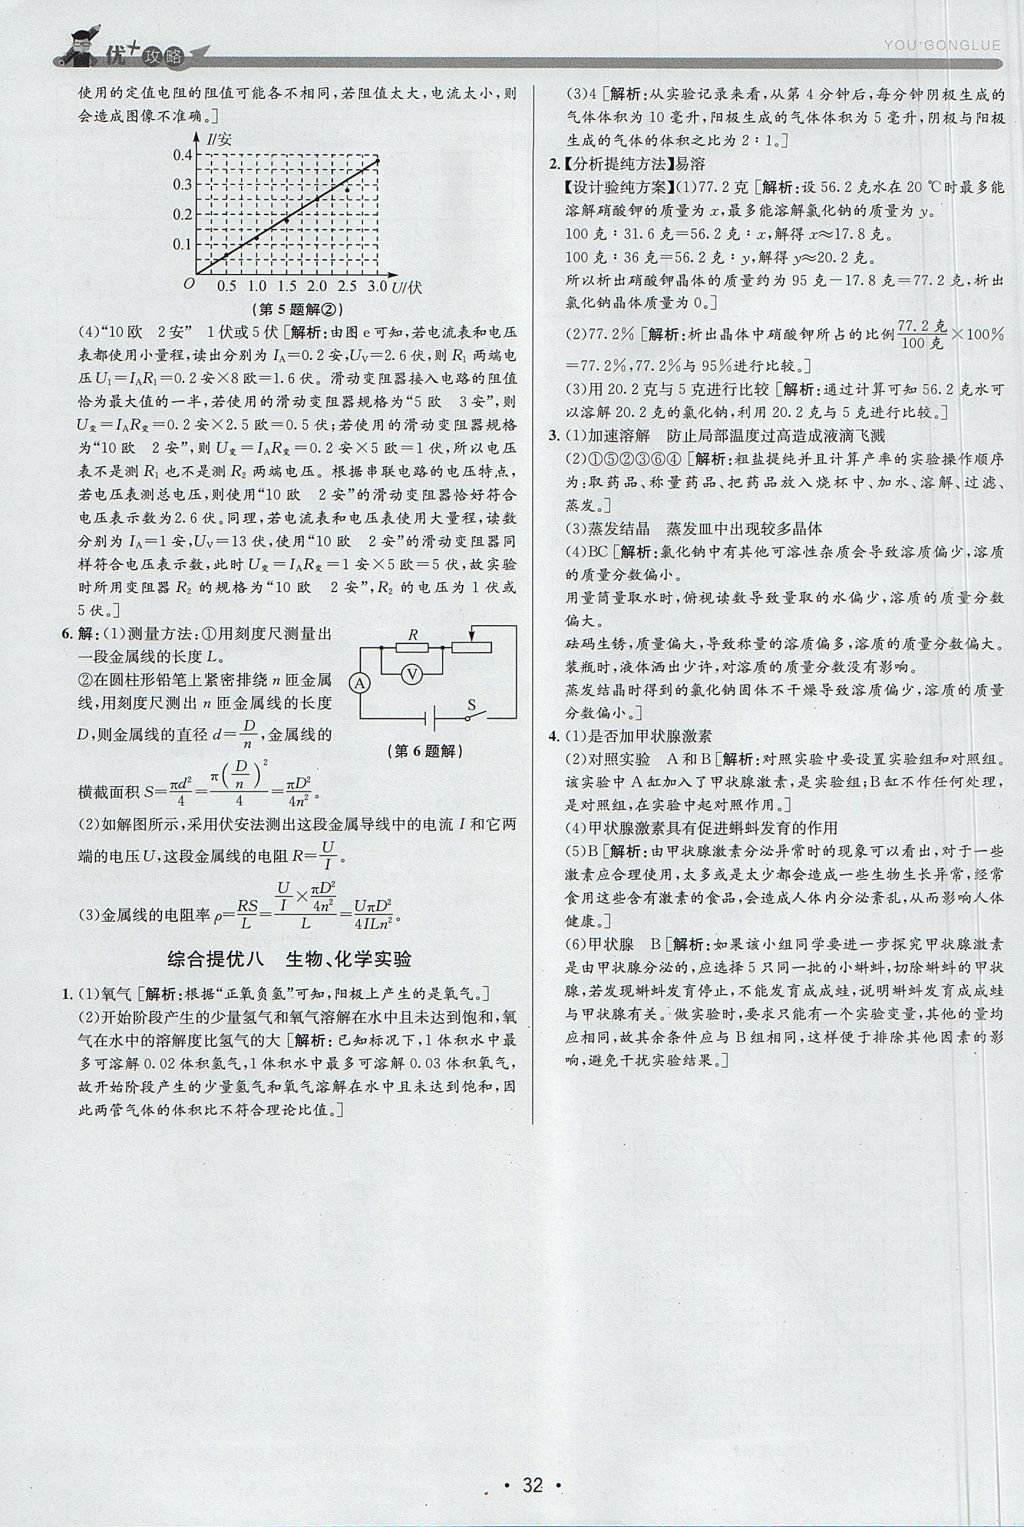 优+攻略
YOU+GONGLUE
使用的定值电阻的阻值可能各不相同,若阻值太大,电流太小,则
会造成图像不准确。]
I/安
0.4
0.3
0.2
0.1
O 0.5 1.0 1.5 2.0 2.5 3.0 U/伏
(第5题解②)
(4)“10欧 2安” 1伏或5伏[解析:由图e可知,若电流表和电压
表都使用小量程,读出分别为 I_A=0.2安,U_V=2.6伏,则 R₁ 两端电
压U₁=I_AR₁=0.2安×8欧=1.6伏。滑动变阻器接入电路的阻值
恰为最大值的一半,若使用的滑动变阻器规格为“5欧 3安”,则
U变=I_AR变=0.2安×2.5欧=0.5伏;若使用的滑动变阻器规格
为“10欧 2安”,则U变=I_AR变=0.2安×5欧=1伏,所以电压
表不是测 R₁ 也不是测 R₂ 两端电压。根据串联电路的电压特点,
若电压表测总电压,则使用“10欧 2安”的滑动变阻器恰好符合
电压表示数为2.6伏。同理,若电流表和电压表使用大量程,读数
分别为 I_A=1安,U_V=13伏,使用“10欧 2安”的滑动变阻器同
样符合电压表示数,此时U变=I_AR变=1安×5欧=5伏,故实验
时所用变阻器R₂的规格为“10欧 2安”,R₂的电压为1伏或
5伏。]
6. 解:(1)测量方法:①用刻度尺测量出
一段金属线的长度L。
②在圆柱形铅笔上紧密排绕n匝金属
线,用刻度尺测出n匝金属线的长度
D,则金属线的直径d=D/n,金属线的
横截面积S=πd²/4=π(D/n)²/4=πD²/4n²。
R
V
A
S
(第6题解)
(2)如解图所示,采用伏安法测出这段金属导线中的电流I和它两
端的电压U,这段金属线的电阻R=U/I。
(3)金属线的电阻率ρ=RS/L=(U/I×πD²/4n²)/L=UπD²/4ILn²。
综合提优八 生物、化学实验
1. (1)氧气[解析:根据“正氧负氢”可知,阳极上产生的是氧气。]
(2)开始阶段产生的少量氢气和氧气溶解在水中且未达到饱和,氧
气在水中的溶解度比氢气的大[解析:已知标况下,1体积水中最
多可溶解0.02体积氢气,1体积水中最多可溶解0.03体积氧气,
故开始阶段产生的少量氢气和氧气溶解在水中且未达到饱和,因
此两管气体的体积比不符合理论比值。]
(3)4[解析:从实验记录来看,从第4分钟后,每分钟阴极生成的
气体体积为10毫升,阳极生成的气体体积为5毫升,阴极与阳极
生成的气体的体积之比为2∶1。]
2. 【分析提纯方法】易溶
【设计验纯方案】(1)77.2克[解析:设56.2克水在20℃时最多能
溶解硝酸钾的质量为x,最多能溶解氯化钠的质量为y。
100克∶31.6克=56.2克∶x,解得x≈17.8克。
100克∶36克=56.2克∶y,解得y≈20.2克。
所以析出硝酸钾晶体的质量约为95克-17.8克=77.2克,析出
氯化钠晶体质量为0。]
(2)77.2%[解析:析出晶体中硝酸钾所占的比例77.2克/100克×100%
=77.2%,77.2%与95%进行比较。]
(3)用20.2克与5克进行比较[解析:通过计算可知56.2克水可
以溶解20.2克的氯化钠,利用20.2克与5克进行比较。]
3. (1)加速溶解 防止局部温度过高造成液滴飞溅
(2)①⑤②③⑥④[解析:粗盐提纯并且计算产率的实验操作顺序
为:取药品、称量药品、把药品放入烧杯中、加水、溶解、过滤、
蒸发。]
(3)蒸发结晶 蒸发皿中出现较多晶体
(4)BC[解析:氯化钠中有其他可溶性杂质会导致溶质偏少,溶质
的质量分数偏小。
用量筒量取水时,俯视读数导致量取的水偏少,溶质的质量分数
偏大。
砝码生锈,质量偏大,导致称量的溶质偏多,溶质的质量分数偏大。
装瓶时,液体洒出少许,对溶质的质量分数没有影响。
蒸发结晶时得到的氯化钠固体不干燥导致溶质偏少,溶质的质量
分数偏小。]
4. (1)是否加甲状腺激素
(2)对照实验 A和B[解析:对照实验中要设置实验组和对照组。
该实验中A缸加入了甲状腺激素,是实验组;B缸不作任何处理,
是对照组,在实验中起对照作用。]
(4)甲状腺激素具有促进蝌蚪发育的作用
(5)B[解析:由甲状腺激素分泌异常时的现象可以看出,对于一些
激素应合理使用,太多或是太少都会造成一些生物生长异常,经常
食用这些含有激素的食品,会造成人体内分泌紊乱,从而影响人体
健康。]
(6)甲状腺 B[解析:如果该小组同学要进一步探究甲状腺激素
是由甲状腺分泌的,应选择5只同一批的小蝌蚪,切除蝌蚪的甲状
腺,若发现蝌蚪发育停止,不能发育成成蛙,说明蝌蚪发育成成蛙
与甲状腺有关。做实验时,要求只能有一个实验变量,其他的量均
应相同,故其余条件应与B组相同,这样便于排除其他因素的影
响,避免干扰实验结果。]
· 32 ·